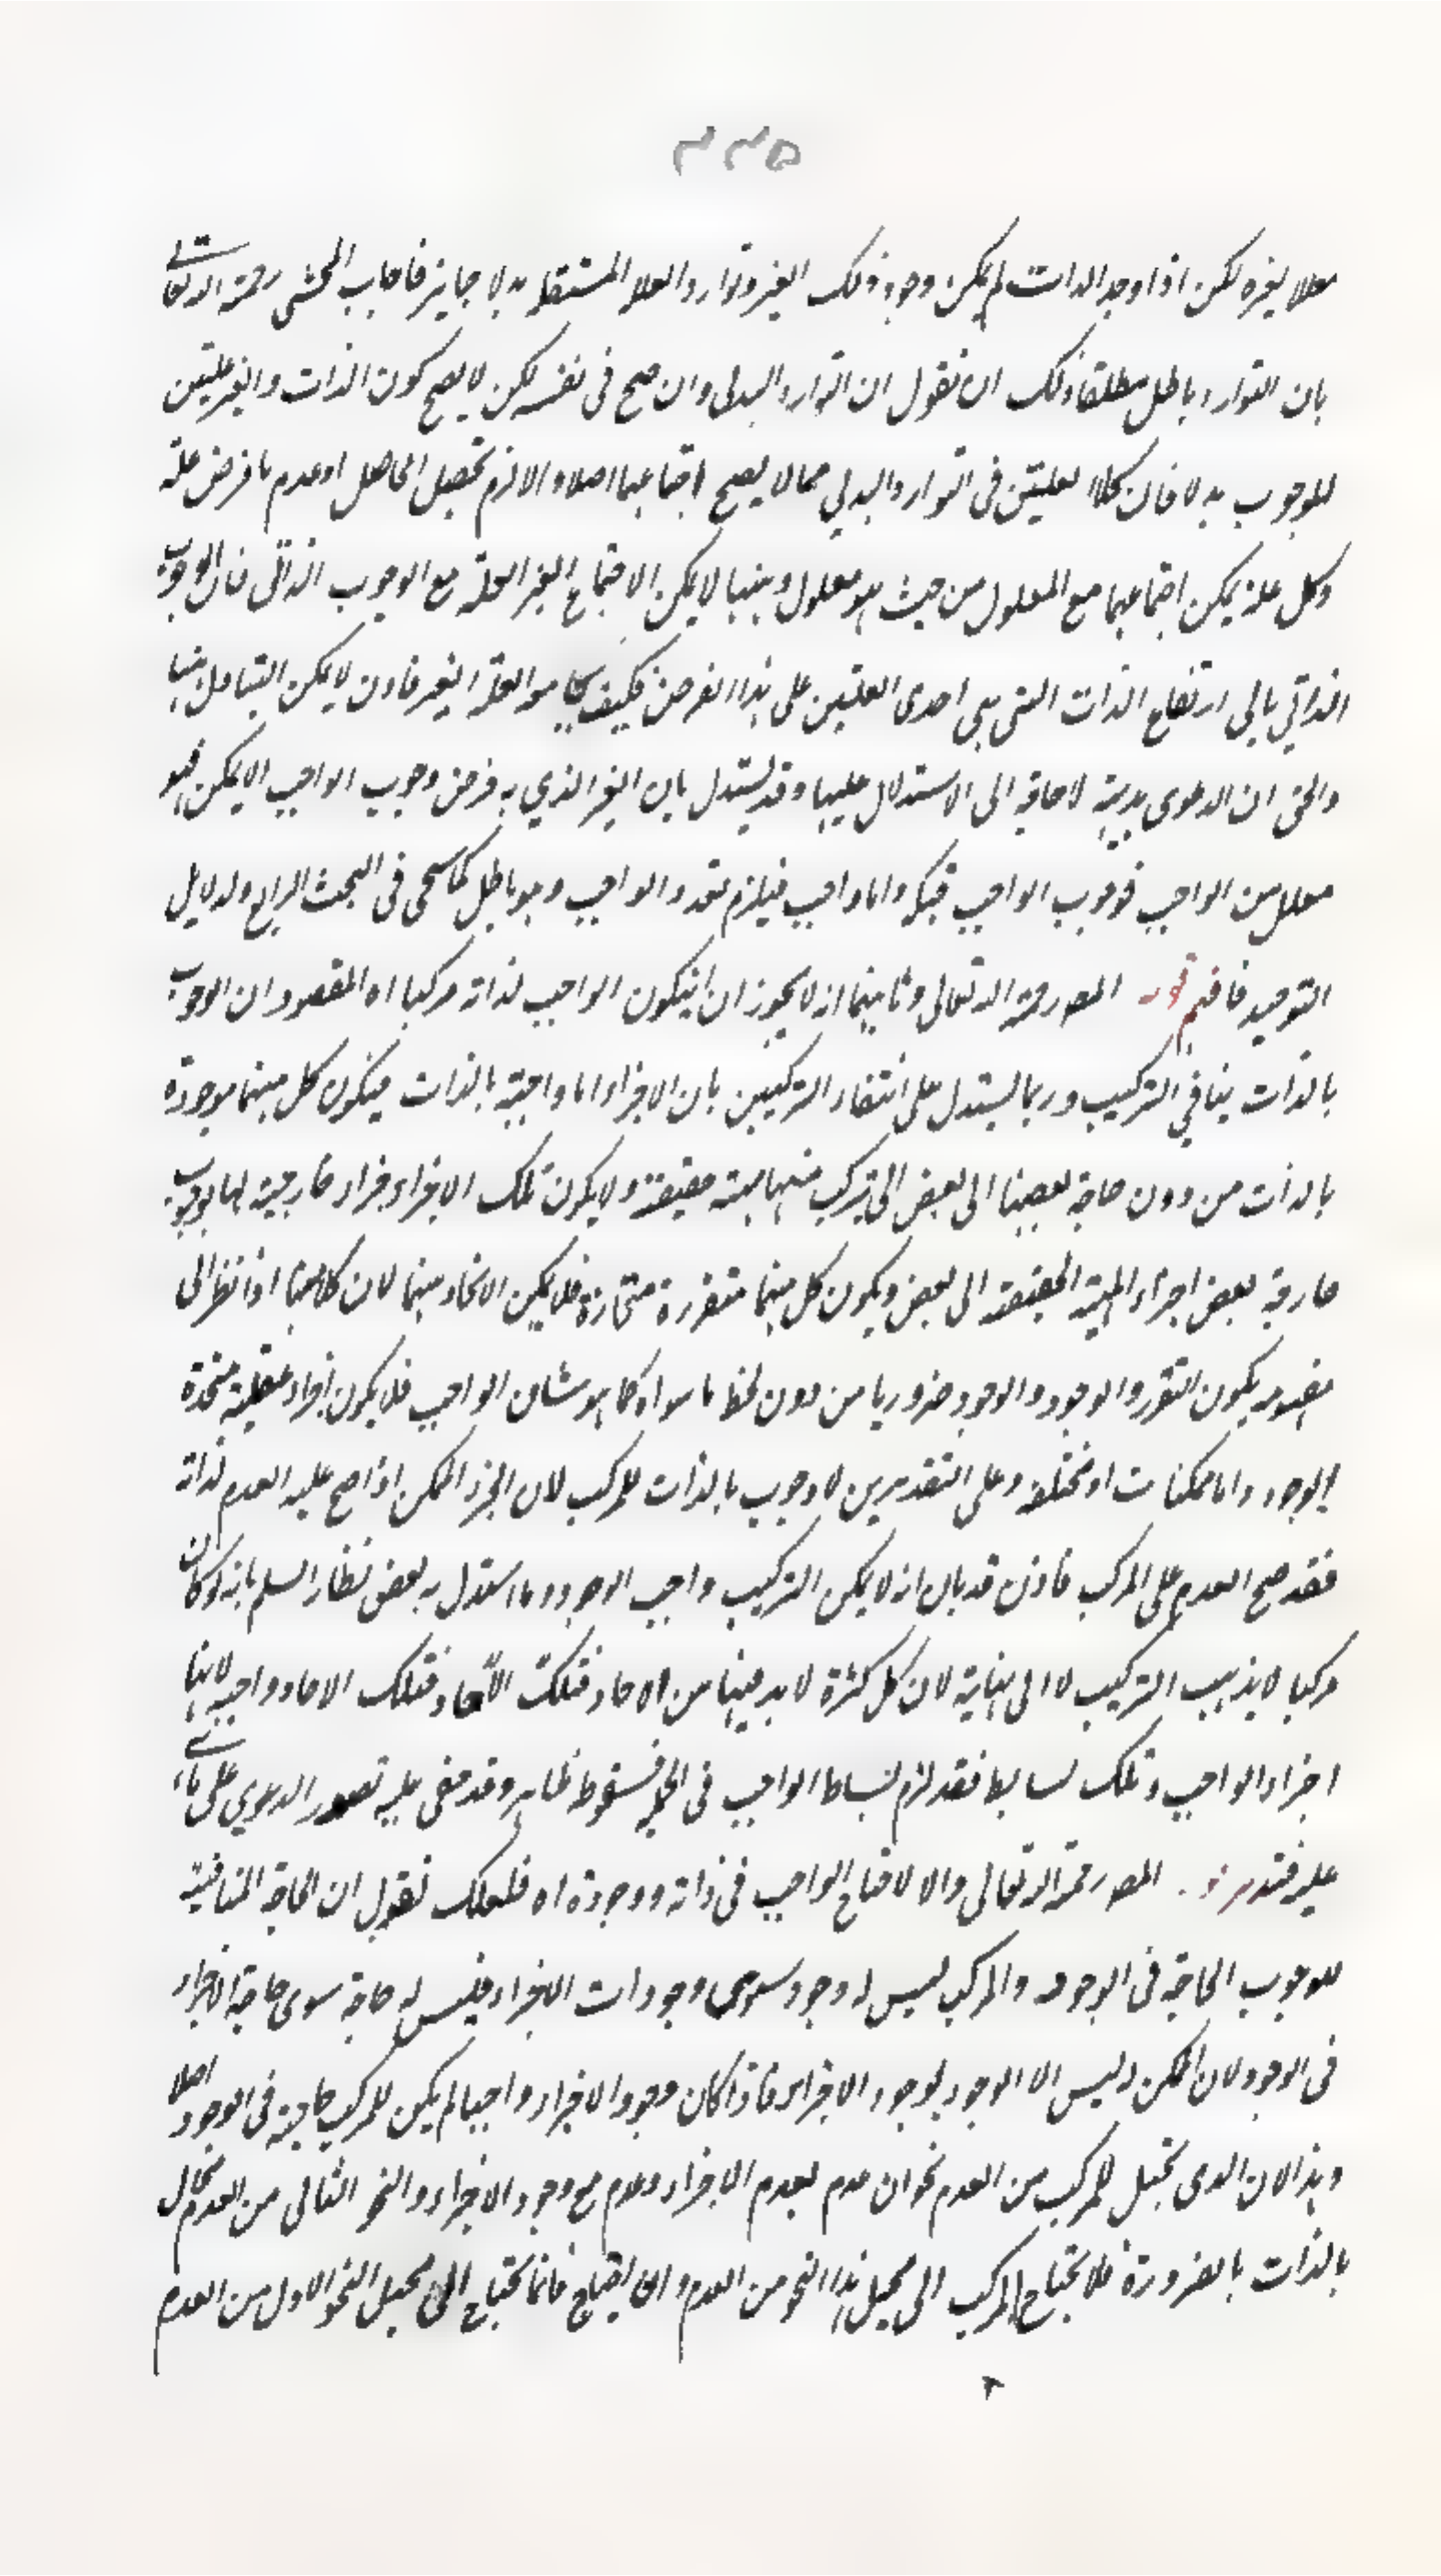 ٢٢٥
معللا بغيره لكن اذا وجد الذات لم يكن وجود ذلك الغير وتوارد العلل المستقلة بدلا جايز فاجاب المحشى رحمة الله تعالى
بان التوارد باطل مطلقا ولك ان نقول ان التوارد البدلى وان صح فى نفسه لكن لا يصح كون الذات والغير علتين
للوجوب بدلا فان كلا العلتين فى التوارد البدلي مما لا يصح اجتماعهما اصلا والا لزم تحصيل الحاصل او عدم ما فرض علة
وكل علة يمكن اجتماعهما مع المعلول من حيث هو معلول وههنا لا يمكن الاجتماع الغير العلة مع الوجوب الذاتى فان الوجوب
الذاتي يابى ارتفاع الذات التى هى احدى العلتين على هذا الفرض فكيف يجامع العلة الغير فاذن لا يمكن التبادل ههنا
والحق ان الدعوى بديهية لا حاجة الى الاستدلال عليها وقد يستدل بان الغير الذي به فرض وجوب الواجب اما ممكن فهو
معلل من الواجب فوجوب الواجب قبله واما واجب فيلزم تعدد الواجب وهو باطل كما سيجى فى البحث الرابع ولدلايل
التوحيد فافهم قوله المص رحمة الله تعالى وثانيهما انه لا يجوز ان يكون الواجب لذاته مركبا اه المقصود ان الوجوب
بالذات ينافي التركيب وربما يستدل على انتفاء التركيبين بان الاجزاء اما واجبة بالذات فيكون كل منهما موجودة
بالذات من دون حاجة بعضها الى بعض التى تركب منها مهية حقيقة ولا يكون تلك الاجزاء اجزاء خارجية لها لوجوب
حاجة بعض اجزاء المهية الحقيقة الى بعض ويكون كل منهما متقررة متحازة فلا يمكن الاتحاد بينهما لان كلا منهما اذا نظر الى
مفهومه يكون التقرر والوجود والوجود ضروريا من دون لحاظ ما سواه كما هو شان الواجب فلا يكون اجزاء عقلية متحدة
الوجود واما ممكنات او مختلطة وعلى التقديرين لا وجوب بالذات للمركب لان الجزء الممكن اذا صح عليه العدم لذاته
فقد صح العدم على المركب فاذن قد بان انه لا يمكن التركيب واجب الوجود وما استدل به بعض نظار السلم بانه لو كان
مركبا لا يذهب التركيب لا الى نهاية لان كل كثرة لا بد فيها من الاحاد فتلك الاحاد فتلك الاحاد واجبة لانها
اجزاء الواجب وتلك بسايط فقد لزم بساطة الواجب فى الجملة فسقوطه ظاهر وقد مضى عليه تصور الدعوي على ما
عليه فتدبر قوله المص رحمة الله تعالى والا لاحتاج الواجب فى ذاته ووجوده اه فلعلك تقول ان الحاجة المنافية
للوجوب الحاجة فى الوجود والمركب ليس له وجود سوى وجودات الاجزاء فليس له حاجة سوى حاجة الاجزاء
فى الوجود لان الممكن ليس الا الوجود لوجود الاجزاء فاذا كان وجود الاجزاء واجبا لم يكن للمركب حاجة فى الوجود اصلا
وهذا لان الذى يحتمل للمركب من العدم نحوان عدم بعدم الاجزاء وعدم مع وجود الاجزاء والنحو الثانى من العدم محال
بالذات بالضرورة فلا يحتاج المركب الى محيل هذا النحو من العدم وان احتاج فانما يحتاج الى محيل النحو الاول من العدم